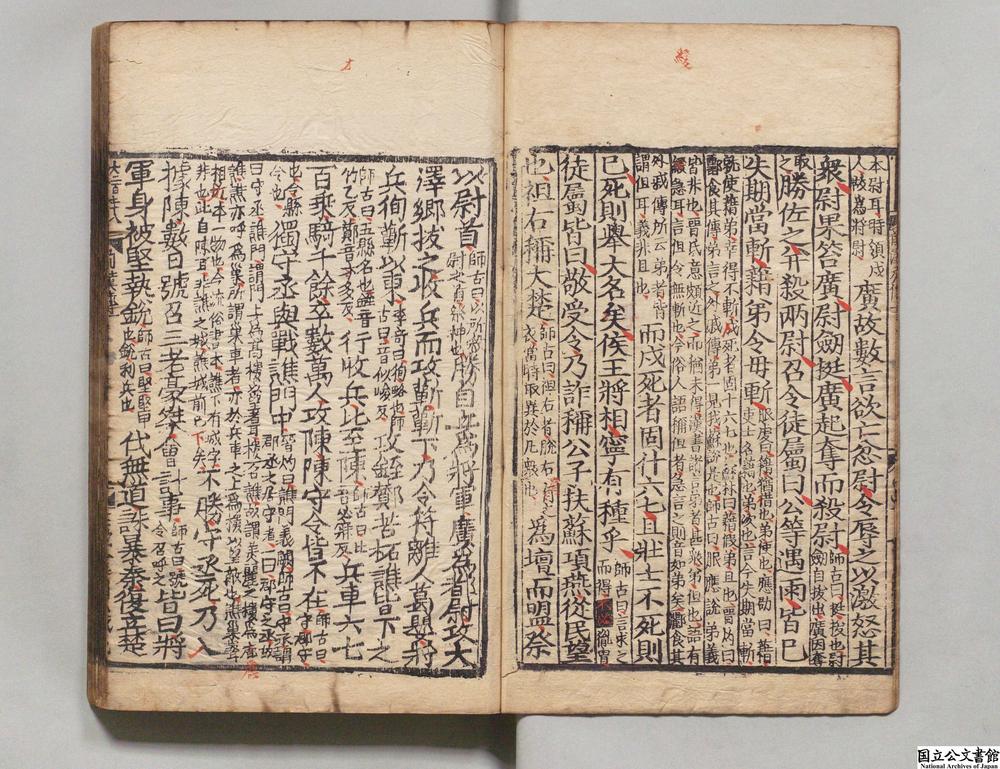 本尉耳時領戍人故爲將尉廣故數言欲亡忿尉令辱之以激怒其
衆尉果笞廣尉劔挺廣起奪而殺尉師古曰挺拔也尉劔自拔出廣因奪
取之勝佐之并殺兩尉召令徒屬曰公等遇雨皆已
失期當斬藉弟令毋斬服虔曰藉猶借也弟使也應劭曰藉吏士名藉也弟次也言今失期當斬
就使藉弟幸得不斬戍死者固十六七也蘇林曰藉假弟且也晉灼曰酈食其傳弟言之外戚傳弟一見我蘇說是也師古曰服應說弟義
皆非也晉氏意頗近之而猶未得漢書諸言弟者甚衆弟但也語有緩急耳言但令無斬也今俗人語稱但者急言之則音如弟矣酈食其
外戚傳所云弟者皆謂但耳義非且也而戍死者固什六七且壯士不死則
已死則舉大名矣侯王將相寧有種乎師古曰言求之而得不必胤冑
徒屬皆曰敬受令乃詐稱公子扶蘇項燕從民望
也袒右稱大楚師古曰袒右者脫右肩之衣當時取異於凡衆也爲壇而盟祭
以尉首師古曰以所殺尉之首祭神也勝自立爲將軍廣爲都尉攻大
澤鄉拔之收兵而攻蘄蘄下乃令符離人葛嬰將
兵徇蘄以東李奇曰徇略也師古曰音似峻反攻銍酇苦柘譙皆下之
師古曰五縣名也銍音竹乙反酇音才多反行收兵比至陳師古曰比音必寐反兵車六七
百乘騎千餘卒數萬人攻陳陳守令皆不在師古曰守郡守
也令縣令也獨守丞與戰譙門中晉灼曰譙門義闕師古曰守丞謂郡丞之居守者一曰郡守之丞故
曰守丞譙門謂門上爲高樓以望者耳樓一名譙故謂美麗之樓爲麗譙譙亦呼爲巢所謂巢車者亦於兵車之上爲樓以望敵也譙巢聲
相近本一物也今流俗書本譙下有城字非也此自陳耳非譙之城譙城前已下矣不勝守丞死乃入
據陳數日號召三老豪桀會計事師古曰號令召呼之皆曰將
軍身被堅執銳師古曰堅堅甲也銳利兵也伐無道誅暴秦復立楚
国立公文書館
National Archives of Japan